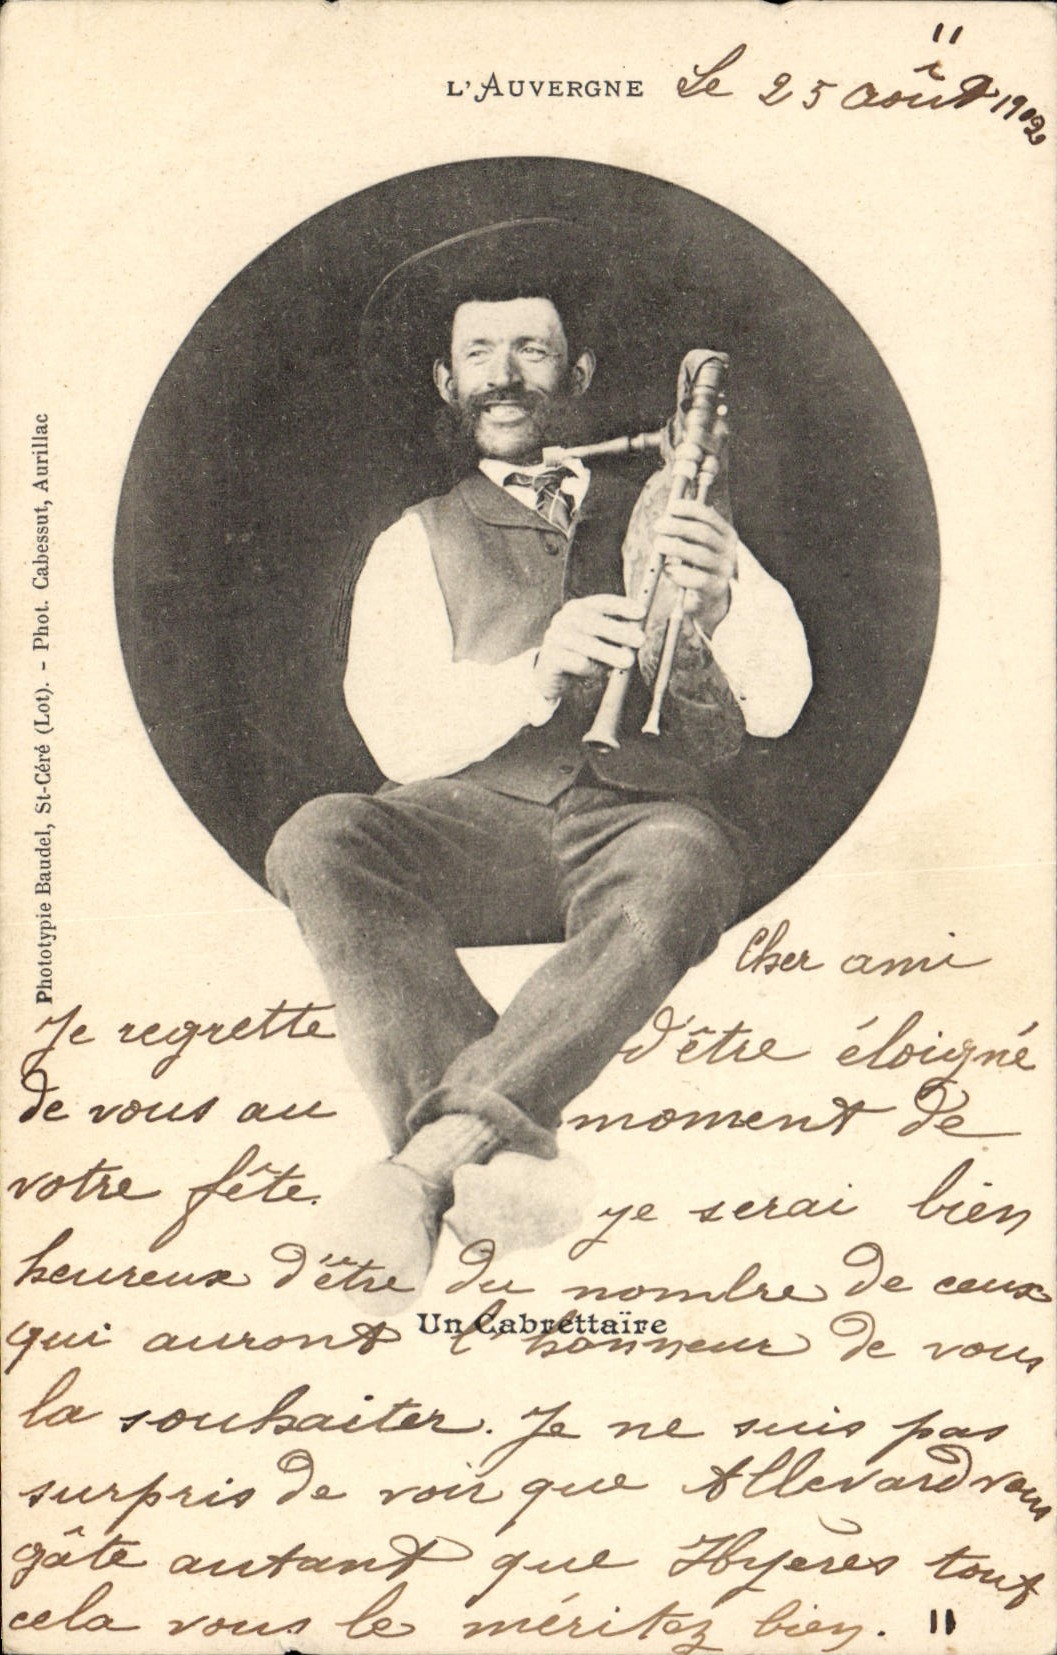 "
L'AUVERGNE Le 25 août 1902
Phototypie Baudel, St-Céré (Lot). - Phot. Cabessut, Aurillac
Cher ami
Je regrette d'être éloigné
de vous au moment de
votre fête. je serai bien
heureux d'être du nombre de ceux
Un Cabrettaïre
qui auront l'honneur de vous
la souhaiter. Je ne suis pas
surpris de voir que Allevard vous
gâte autant que Hyères tout
cela vous le méritez bien. "